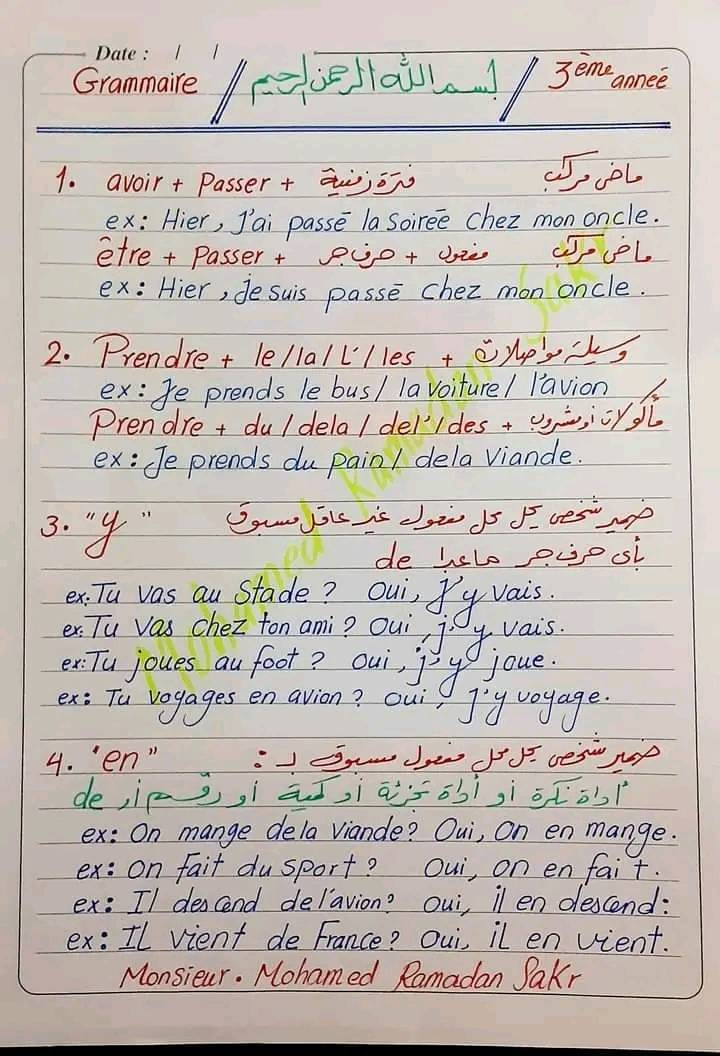 Date : / /
Grammaire // بسم الله الرحمن الرحيم // 3ème anneé
1. avoir + Passer + فترة زمنية ماضى مركب
ex: Hier, J'ai passé la Soirée chez mon oncle.
être + Passer + حرف جر + مفعول ماضى مركب
ex: Hier, Je suis passé chez mon oncle.
2. Prendre + le/la/L'/les + وسيلة مواصلات
ex: Je prends le bus/ la Voiture/ l'avion
Prendre + du/dela/del'/des + مأكولات أو مشروب
ex: Je prends du Pain/ dela Viande.
3. "y" ضمير شخصى يحل محل مفعول غير عاقل مسبوق
بأى حرف جر ماعدا de
ex: Tu vas au Stade ? Oui, J'y vais.
ex: Tu Vas chez ton ami ? Oui, j'y vais.
ex: Tu joues au foot ? oui, j'y joue.
ex: Tu Voyages en avion ? oui, j'y voyage.
4. "en" ضمير شخصى يحل محل مفعول مسبوق بـ :
أداة نكرة أو أداة تجزئة أو كمية أو رقم أو de
ex: On mange dela Viande? Oui, On en mange.
ex: On fait du sport ? Oui, on en fait.
ex: Il descend de l'avion? oui, il en descend:
ex: IL vient de France? Oui, iL en vient.
Monsieur. Mohamed Ramadan Sakr
Mohamed Ramadan Sakr